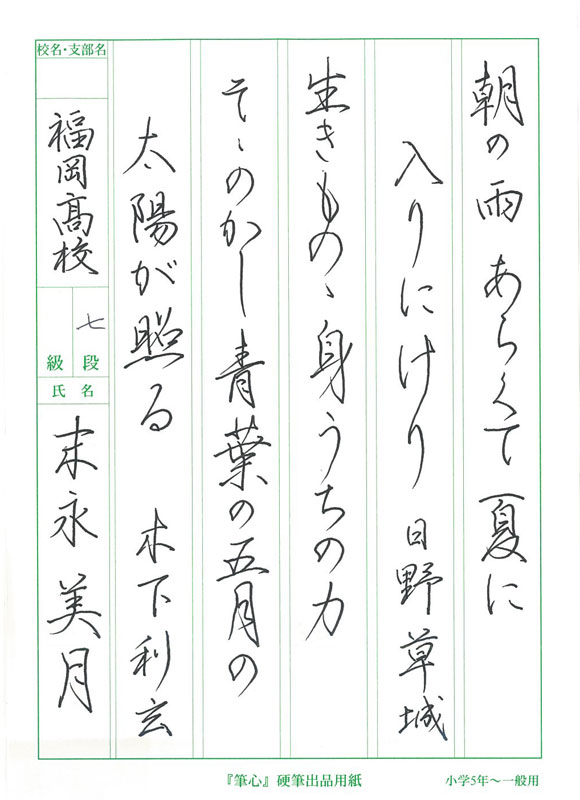 朝の雨 あらくて 夏に
入りにけり 日野草城
生きものゝ身うちの力
そゝのかし青葉の五月の
太陽が照る 木下利玄
校名・支部名
福岡高校
七段
級
氏名
末永美月
『筆心』硬筆出品用紙
小学5年～一般用